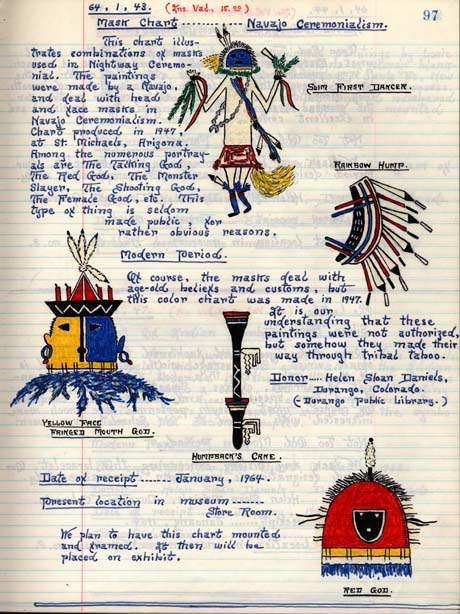 97
64, 1, 43. (Ins. Val., 15.00)
Mask Chart ---------- Navajo Ceremonialism.
This chart illus-
trates combinations of masks
used in Nightway Ceremo-
nial. The paintings
were made by a Navajo,
and deal with head
and face masks in
Navajo Ceremonialism.
Chart produced in 1947,
at St. Michaels, Arizona.
Among the numerous portray-
als are The Talking God,
The Red God, The Monster
Slayer, The Shooting God,
The Female God, etc. This
type of thing is seldom
made public, for
rather obvious reasons.
SLIM FIRST DANCER.
RAINBOW HUMP.
Modern Period.
Of course, the masks deal with
age-old beliefs and customs, but
this color chart was made in 1947.
It is our
understanding that these
paintings were not authorized,
but somehow they made their
way through tribal taboo.
Donor .... Helen Sloan Daniels,
Durango, Colorado.
(-Durango Public Library.)
YELLOW FACE
FRINGED MOUTH GOD.
HUMPBACK'S CANE.
Date of receipt ------- January, 1964.
Present location in museum -------
Store Room.
We plan to have this chart mounted
and framed. It then will be
placed on exhibit.
RED GOD.